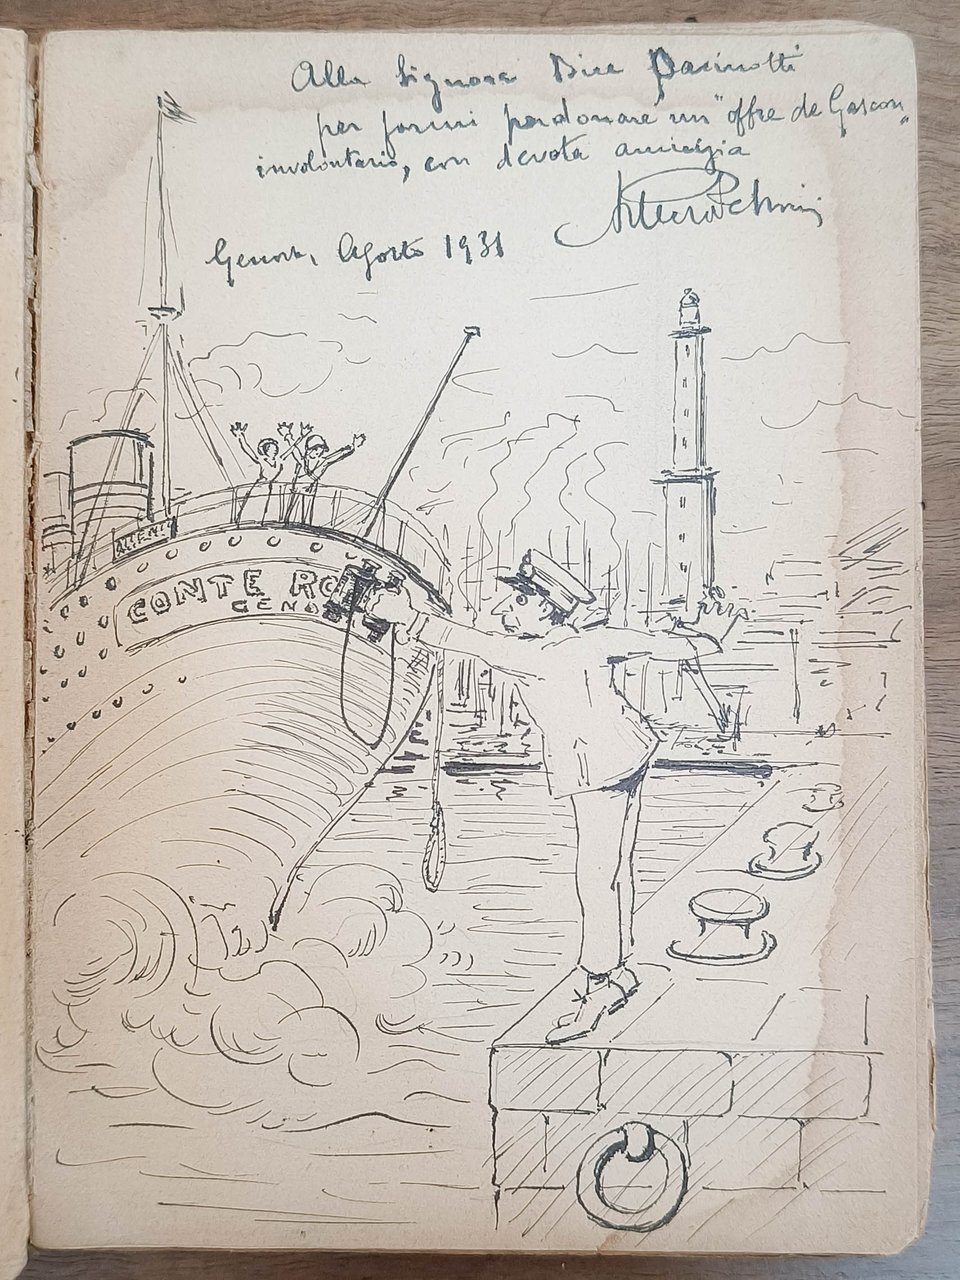 Alla Signora Dire Pasinotti
per farmi perdonare un "offre de Gascon"
involontario, con devota amicizia
Genova, Agosto 1931
CONTE RO
GENO